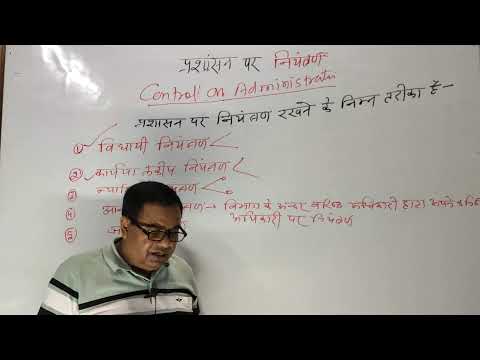 प्रशासन पर नियंत्रण
Control on Administration
प्रशासन पर नियंत्रण रखने के निम्न तरीका हैं-
① विधायी नियंत्रण
② नियंत्रण
③
④ विभाग के अन्दर वरिष्ठ अधिकारी द्वारा अपने
अधिकारी पर नियंत्रण
⑤